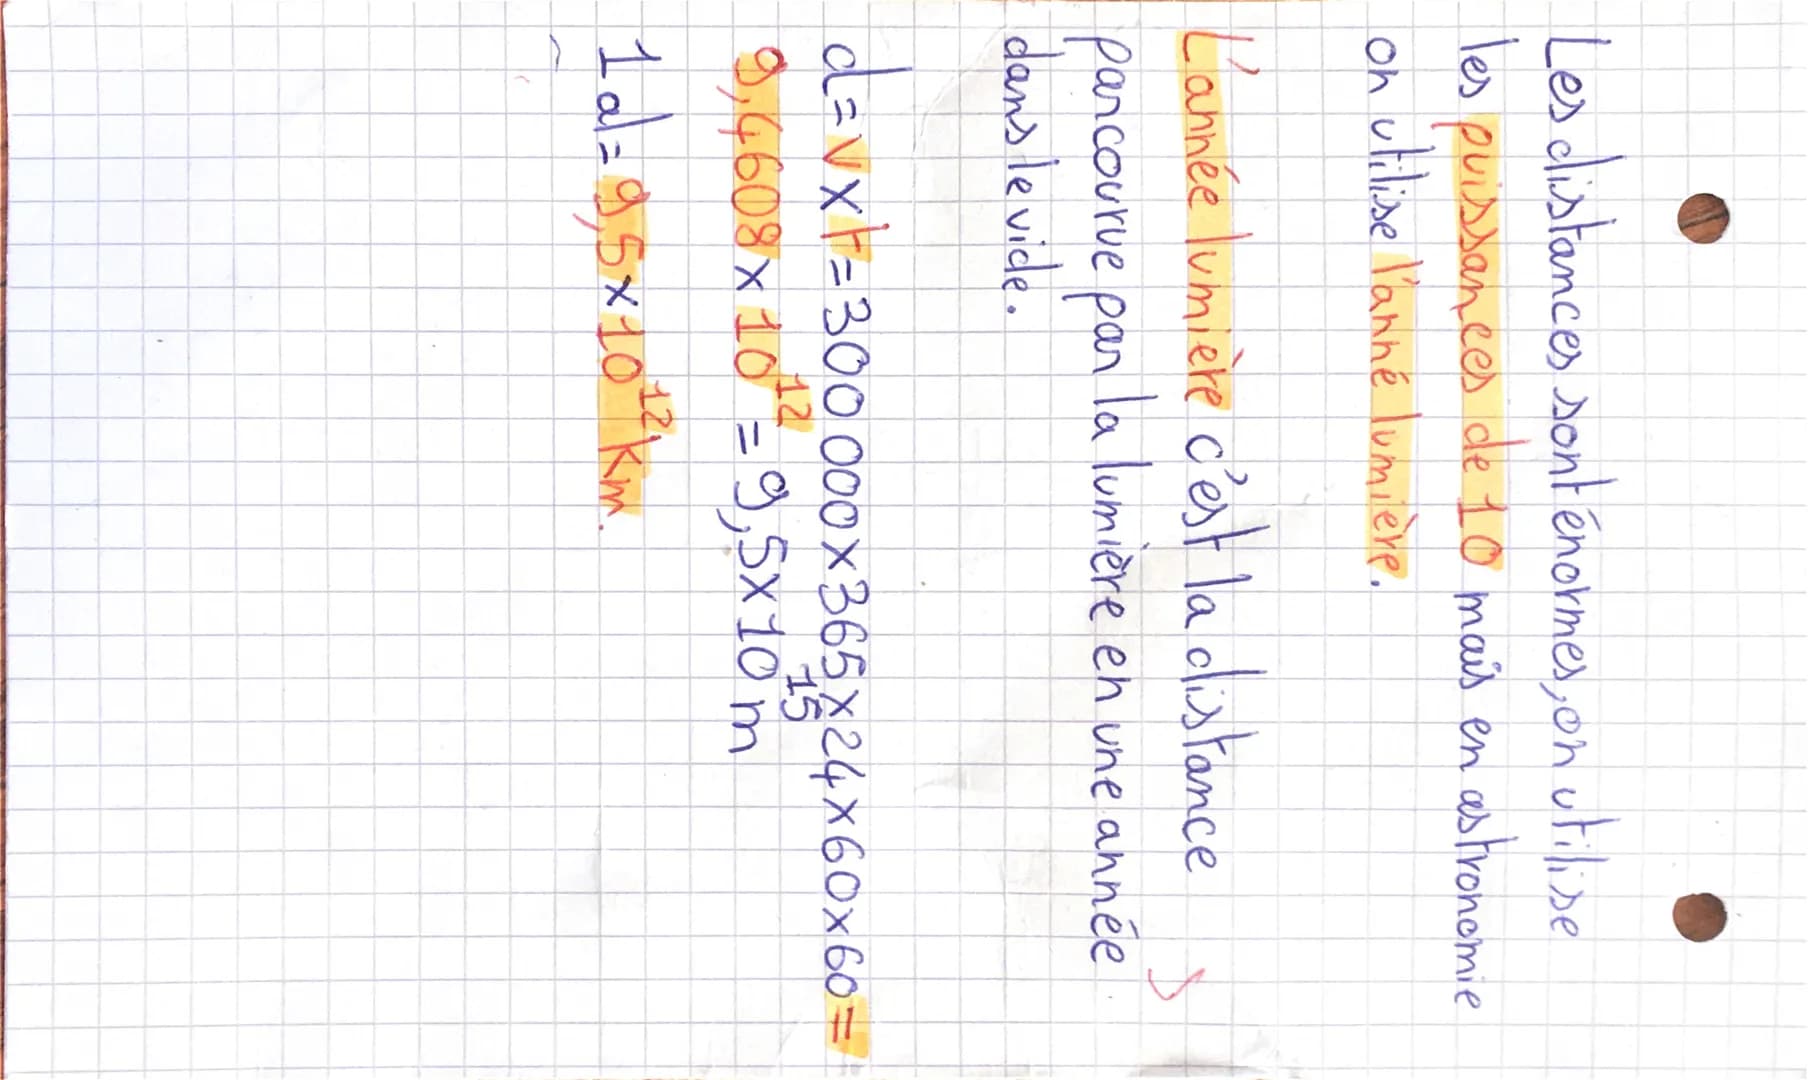 Les distances sont énormes, on utilise
les puissances de 10 mais en astronomie
on utilise l'anné lumière.
L'année lumière c'est la distance
parcourue par la lumière en une année
dans le vide.
d = v x t = 300 000 x 365 x 24 x 60 x 60 =
9,4608 x 10¹² = 9,5 x 10¹⁵ m
1 al = 9,5 x 10¹² km.